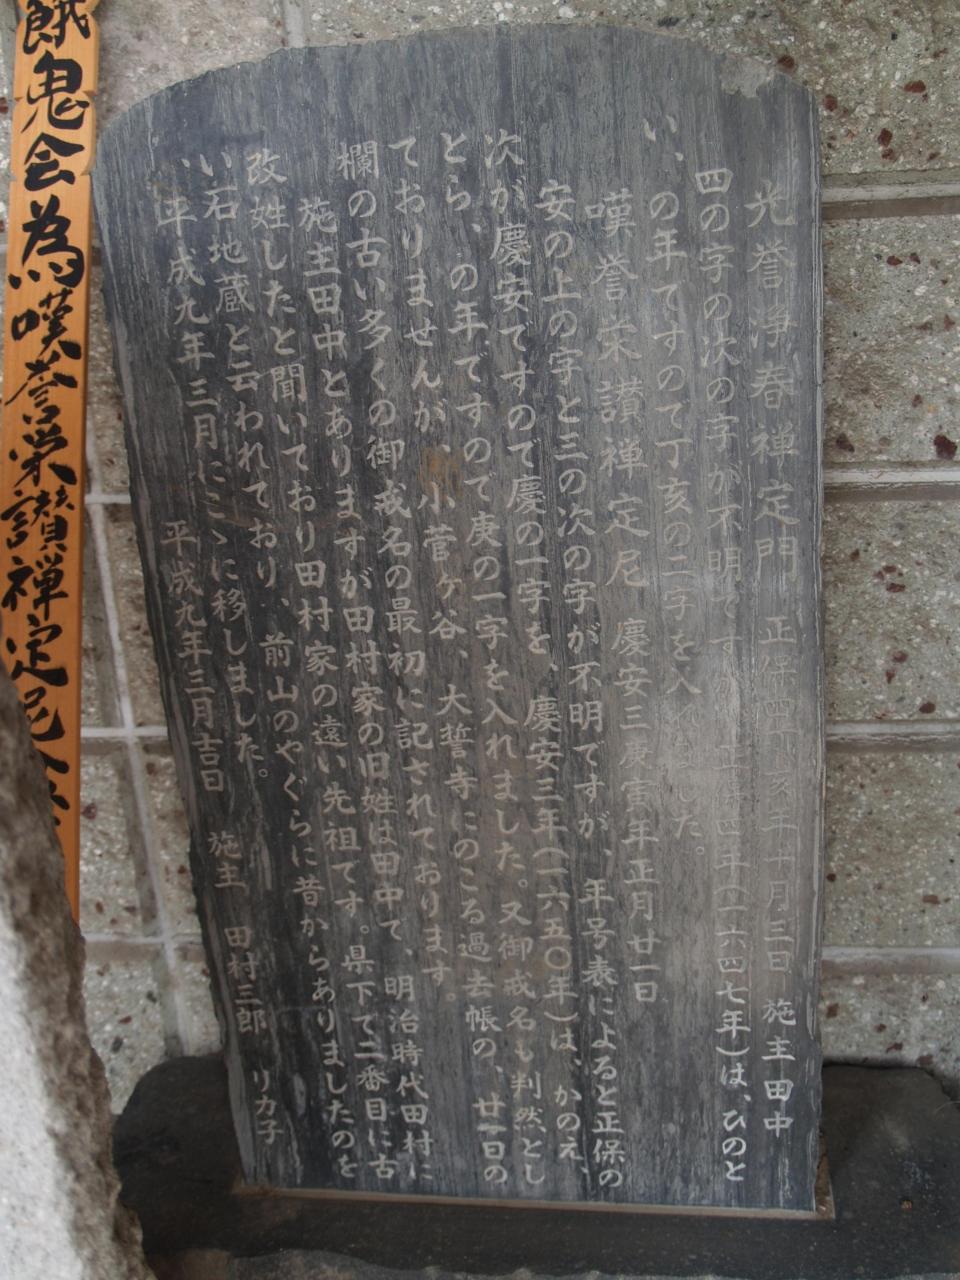 光誉浄春禅定門 正保四丁亥年十月三日 施主田中
四の字の次の字が不明ですが、正保四年(一六四七年)は、ひのと
い、の年てすのて丁亥の二字を入れました。
嘆誉栄讃禅定尼 慶安三庚寅年正月廿一日
安の上の字と三の次の字が不明ですが、年号表によると正保の
次が慶安ですので慶の一字を、慶安三年(一六五〇年)は、かのえ、
とら、の年、ですので庚の一字を入れました。又御戒名も判然とし
ておりませんが、小菅ヶ谷、大誓寺にのこる過去帳の、廿一日の
欄の古い多くの御戒名の最初に記されております。
施主田中とありますが田村家の旧姓は田中て、明治時代田村に
改姓したと聞いており田村家の遠い先祖です。県下で二番目に古
い石地蔵と云われており、前山のやぐらに昔からありましたのを
、平成九年三月にこゝに移しました。
平成九年三月吉日 施主 田村三郎 リカ子
餓鬼会為嘆誉栄讃禅定尼